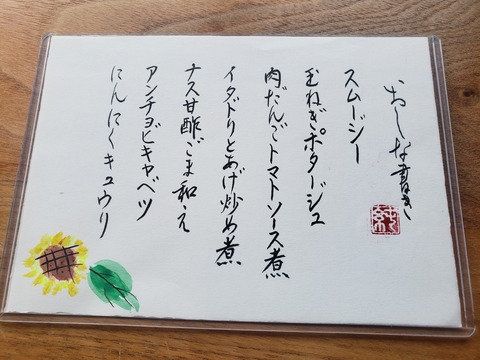 おしな書き
スムージー
玉ねぎポタージュ
肉だんごトマトソース煮
イタドリとあげ炒め煮
ナス甘酢ごま和え
アンチョビキャベツ
にんにくキュウリ
純